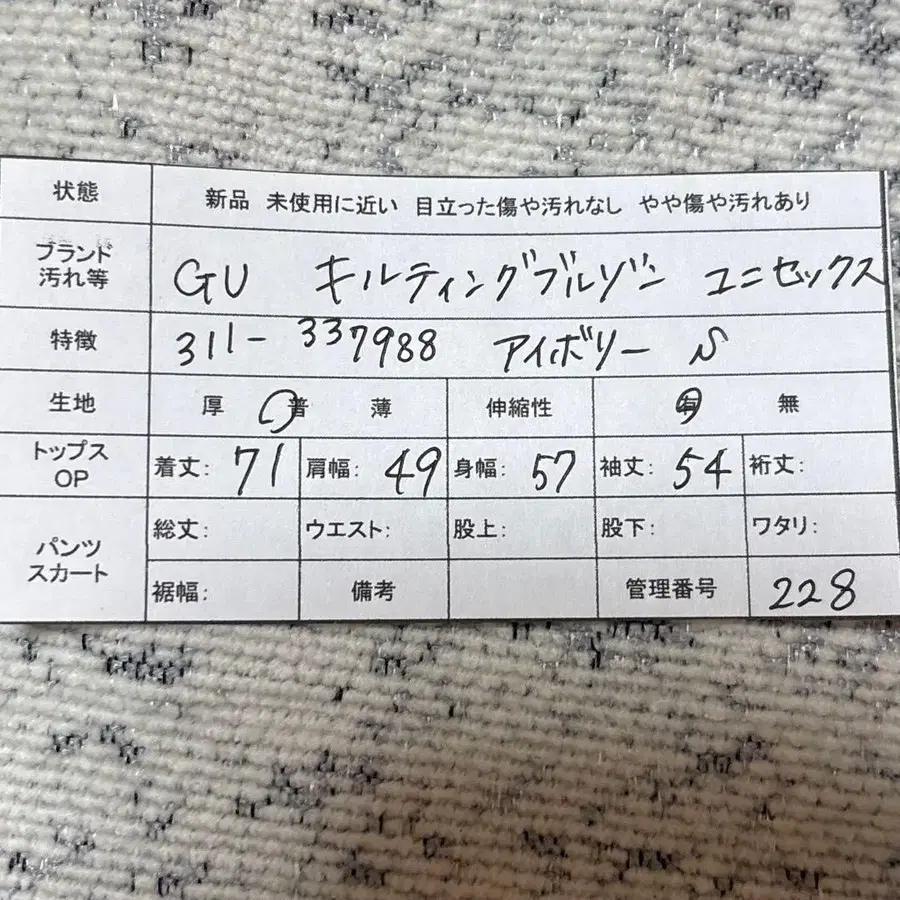 状態 新品 未使用に近い 目立った傷や汚れなし やや傷や汚れあり
ブランド
汚れ等 GU キルティングブルゾン ユニセックス
特徴 311-337988 アイボリー S
生地 厚 普 薄 伸縮性 有 無
トップス
OP 着丈: 71 肩幅: 49 身幅: 57 袖丈: 54 裄丈:
パンツ
スカート 総丈: ウエスト: 股上: 股下: ワタリ:
裾幅: 備考 管理番号 228